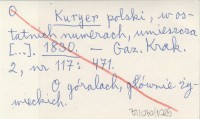 O Kuryer polski, w os-
tatnich numerach, umieszcza
[...]. 1830. — Gaz. Krak.
2, nr 117: 471.
O góralach, głównie ży-
wieckich.